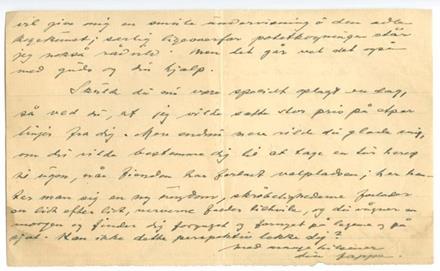 vil give mig en smule undervisning i den ædle
kogekunst; særlig ligeoverfor potetkogningen står
jeg nokså rådvild. Men det går vel det også
med guds og din hjælp.
Skulde du nu være specielt plaget en dag,
så ved du, at jeg vilde sætte stor pris på et par
linjer fra dig. Men endnu mere vilde du glæde mig,
om du vilde bestemme dig til at tage en tur herop
til egnen, når fienden har forladt valpladsen; her hen-
ter man sig en ny ungdom, skrøbelighederne forlader
en lidt efter lidt, nerverne finder hvile, og du vågner en
morgen og finder dig forynget og fornyet på legeme og på
sjæl. Kan ikke dette perspektiv lokke dig?
Med mange hilsener
din